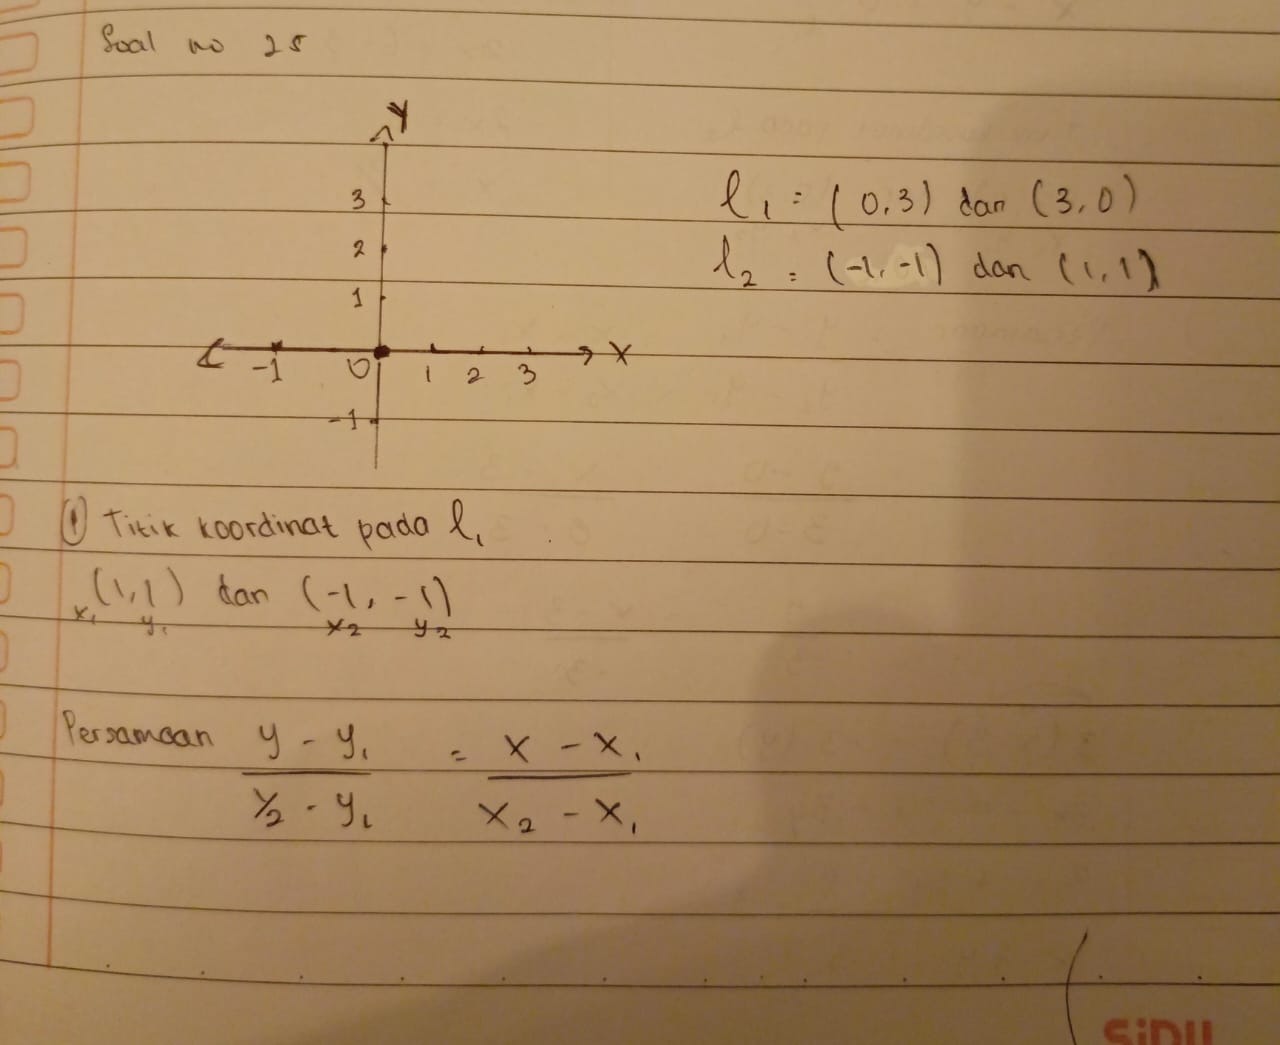 Soal no 25
Y
3
2
1
-1 0 1 2 3 X
-1
l₁ = (0,3) dan (3,0)
l₂ = (-1,-1) dan (1,1)
① Titik koordinat pada l₁
(1,1) dan (-1, -1)
x₁ y₁ x₂ y₂
Persamaan y - y₁ = x - x₁
y₂ - y₁ x₂ - x₁
SiDU